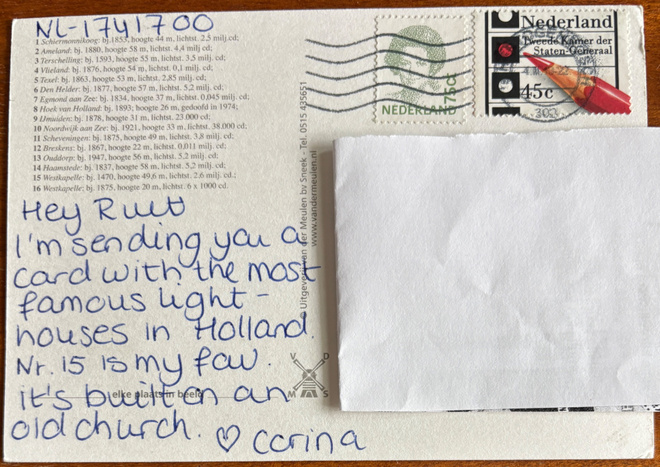 NL-1741700
1 Schiermonnikoog: bj. 1853, hoogte 44 m, lichtst. 2,5 milj.cd;
2 Ameland: bj. 1880, hoogte 58 m, lichtst. 4,4 milj cd;
3 Terschelling: bj. 1593, hoogte 55 m, lichtst. 3,5 milj. cd;
4 Vlieland: bj. 1876, hoogte 54 m, lichtst. 0,1 milj. cd;
5 Texel: bj. 1863, hoogte 53 m, lichtst. 2,85 milj. cd;
6 Den Helder: bj. 1877, hoogte 57 m, lichtst. 5,2 milj. cd;
7 Egmond aan Zee: bj. 1834, hoogte 37 m, lichtst. 0,045 milj. cd;
8 Hoek van Holland: bj. 1893; hoogte 26 m, gedoofd in 1974;
9 IJmuiden: bj. 1878, hoogte 31 m, lichtst. 23.000 cd;
10 Noordwijk aan Zee: bj. 1921, hoogte 33 m, lichtst. 38.000 cd;
11 Scheveningen: bj. 1875, hoogte 49 m, lichtst. 3,8 milj. cd;
12 Breskens: bj. 1867, hoogte 22 m, lichtst. 0,011 milj. cd;
13 Ouddorp: bj. 1947, hoogte 56 m, lichtst. 5,2 milj. cd;
14 Haamstede: bj. 1837, hoogte 58 m, lichtst. 5,2 milj. cd;
15 Westkapelle: bj. 1470, hoogte 49,6 m, lichtst. 2,6 milj. cd.;
16 Westkapelle; bj. 1875, hoogte 20 m, lichtst. 6 x 1000 cd;
Hey Ruit
I'm sending you a
card with the most
famous light-
houses in Holland.
Nr. 15 is my fav.
it's built on an
old church. ♡ Corina
elke plaats in beeld
V D
M S
© Uitgeverij van der Meulen bv Sneek - Tel. 0515 435651
www.vandermeulen.nl
NEDERLAND
75c
Nederland
Tweede Kamer der
Staten-Generaal
45c